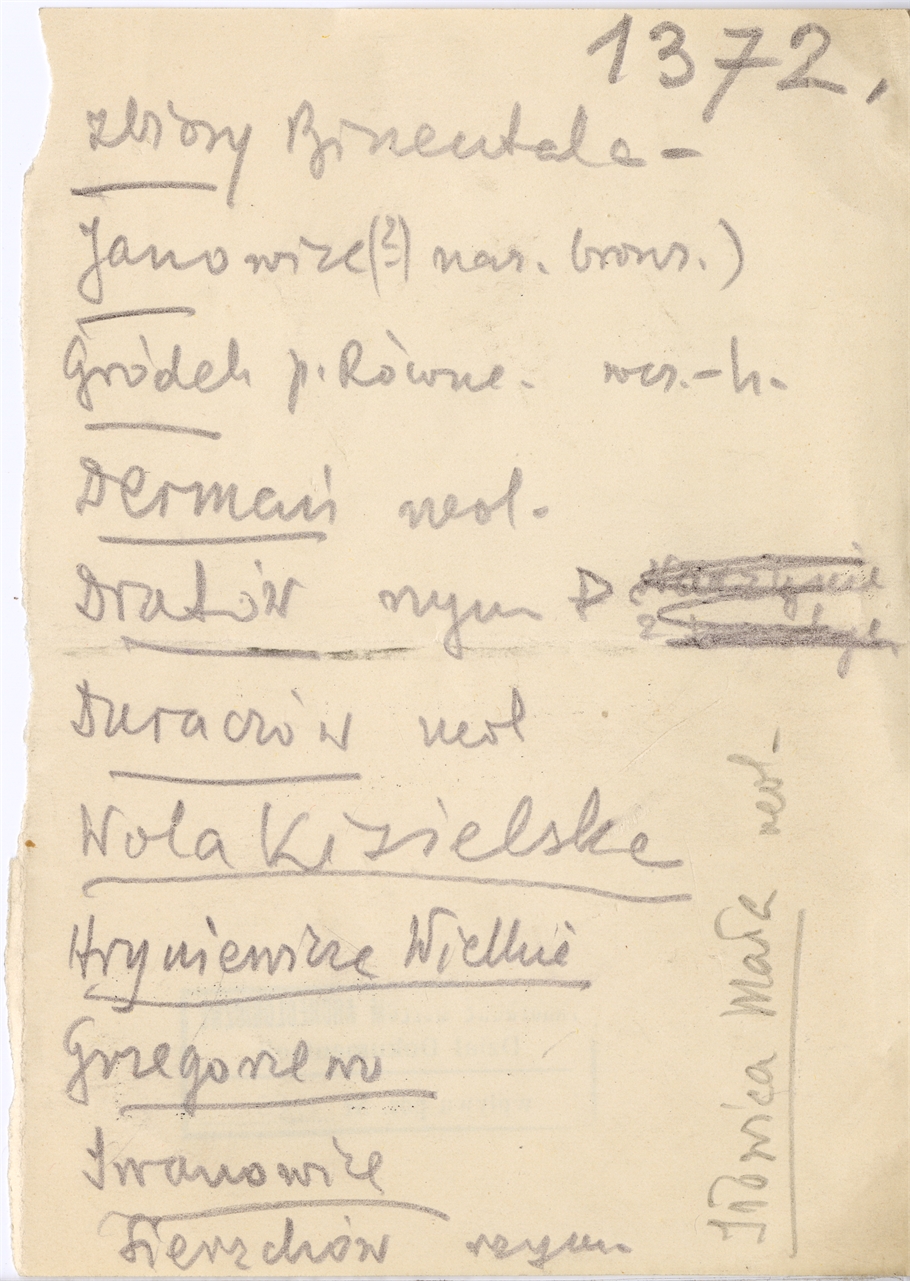 1372.
Zbiory Binentala -
Janowice (?) nar. bronz.)
Gródek p. Równe. wcz.-h.
Dermań neol.
Dratów rzym D
Duraczów neol
Wola Kisielska
Hryniewicze Wielkie
Grzegorzew
Iwanowice
Sierzchów rzym
Iłowica Mała neol.